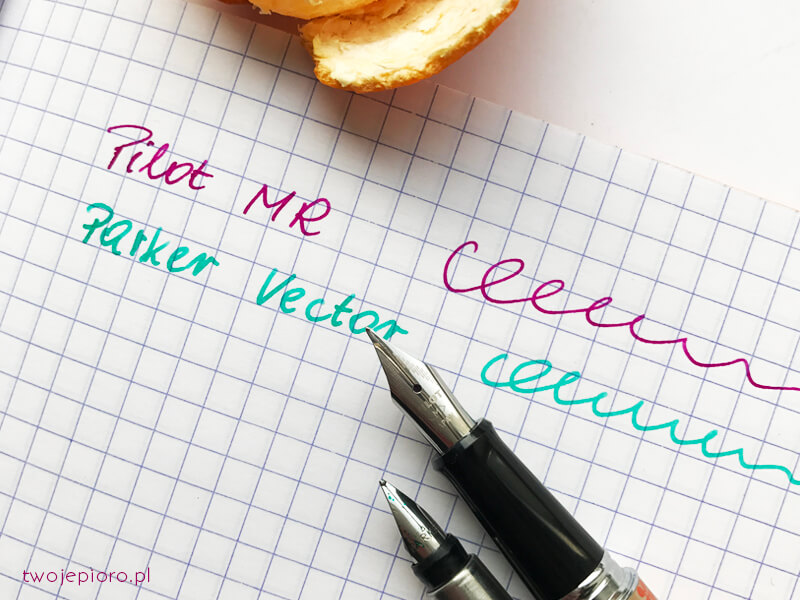 Pilot MR
Parker Vector
twojepioro.pl